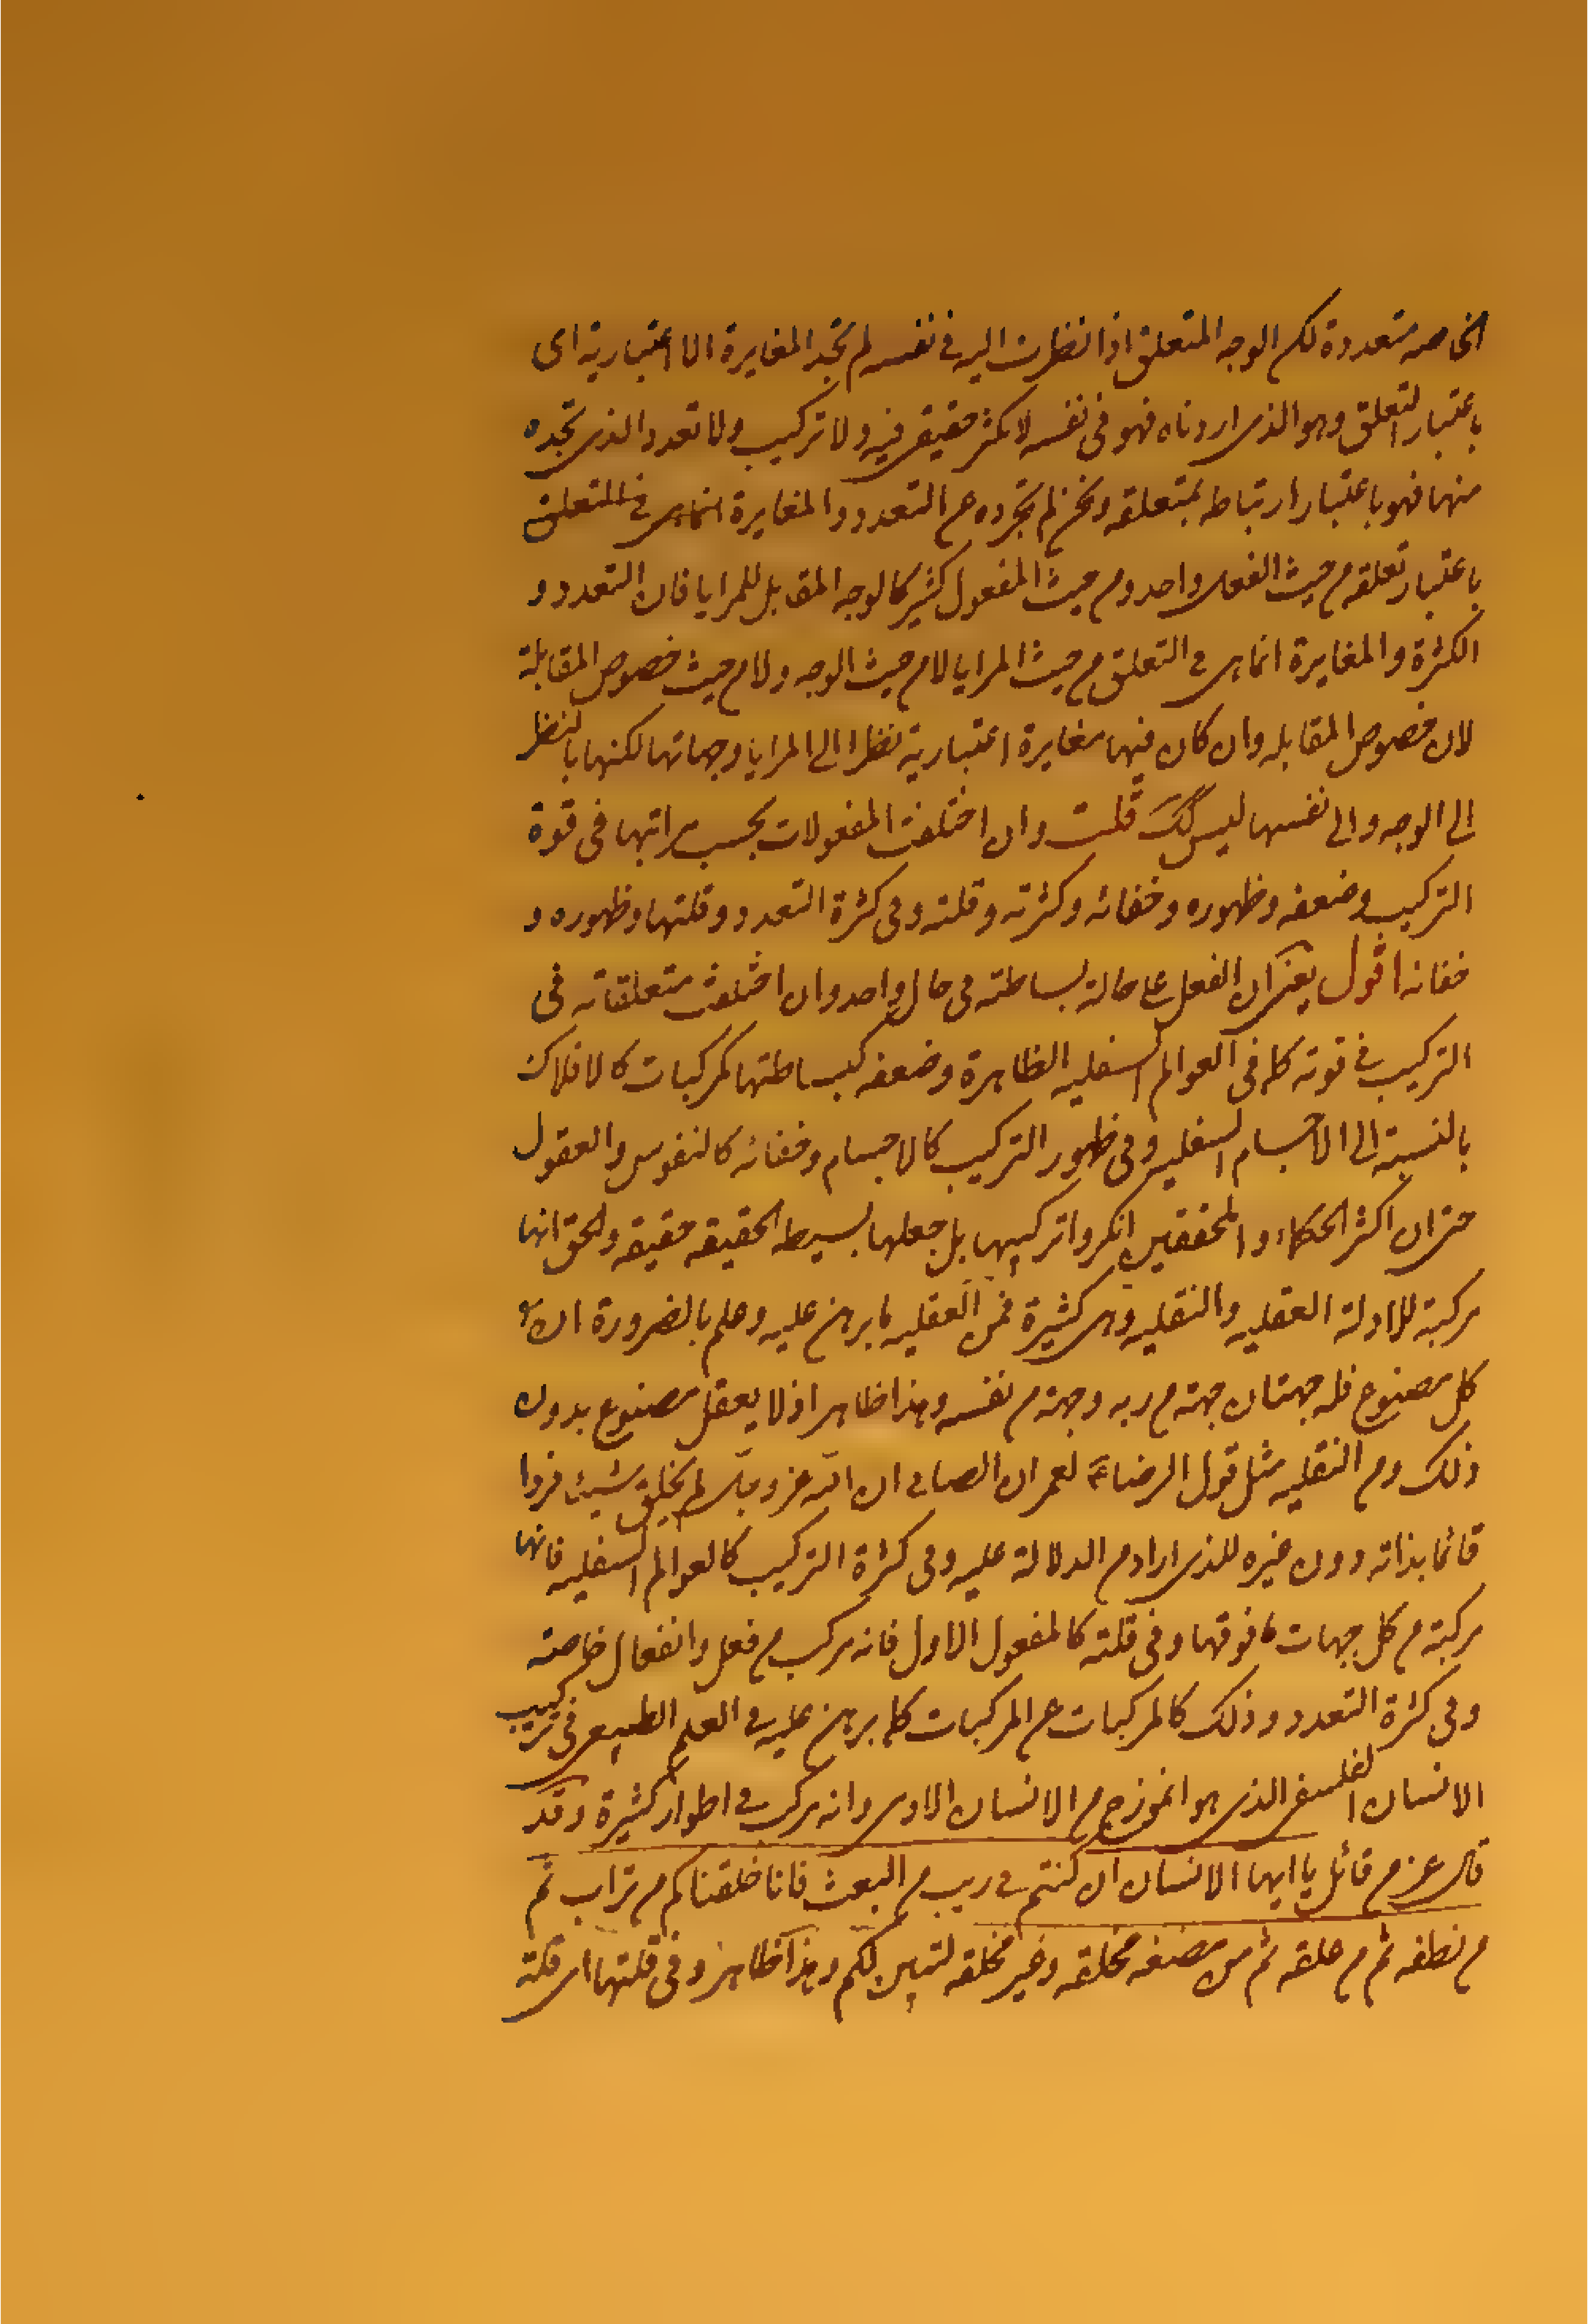 الخاصه متعددة لكن الوجه المتعلق اذا نظرت اليه فى نفسه لم تجد المغايرة الا اعتبارية اى
باعتبار التعلق وهو الذى اردناه فهو فى نفسه لا تكثر حقيقى فيه ولا تركيب ولا تعدد الذى تجده
منها فهو باعتبار ارتباطه بمتعلقه ونحن لم نجرده عن التعدد والمغايرة انما هى فى المتعلق
باعتبار تعلقه من حيث الفعل واحد ومن حيث المفعول كثير كالوجه المقابل للمرايا فان التعدد و
الكثرة والمغايرة انما هى فى التعلق من حيث المرايا لا من حيث الوجه ولا من حيث خصوص المقابلة
لان خصوص المقابله وان كان فيها مغايرة اعتبارية نظرا الى المرايا وجهاتها لكنها بالنظر
الى الوجه والى نفسها ليس كك قلت وان اختلفت المفعولات بحسب مراتبها فى قوة
التركيب وضعفه وظهوره وخفائه وكثرته وقلته وفى كثرة التعدد وقلتها وظهوره و
خفائه اقول يعنى ان الفعل على حالة بساطته فى حال واحد وان اختلفت متعلقاته فى
التركيب فى قوته كما فى العوالم السفليه الظاهرة وضعفه كبساطتها كمركبات كالافلاك
بالنسبة الى الاجسام السفليه وفى ظهور التركيب كالاجسام وخفائه كالنفوس والعقول
حتى ان اكثر الحكماء والمحققين انكروا تركيبها بل جعلها بسيطه الحقيقه حقيقه والحق انها
مركبة للادلة العقليه والنقليه وهى كثيرة فمن العقليه ما برهن عليه وعلم بالضرورة ان
كل مصنوع فله جهتان جهة من ربه وجهة من نفسه وهذا ظاهر اذ لا يعقل مصنوع بدون
ذلك ومن النقليه مثل قول الرضا ع لعمران الصابى ان الله عز وجل لم يخلق شيئا فردا
قائما بذاته دون غيره للذى اراد من الدلالة عليه وفى كثرة التركيب كالعوالم السفليه فانها
مركبة من كل جهات ما فوقها وفى قلته كالمفعول الاول فانه مركب من فعل وانفعال خاصة
وفى كثرة التعدد وذلك كالمركبات عن المركبات كما برهن عليه فى العلم الطبيعى فى تركيب
الانسان الفلسفى الذى هو انموزج من الانسان الاوسى وانه مركب فى اطوار كثيرة وقد
قال عز من قائل يا ايها الانسان ان كنتم فى ريب من البعث فانا خلقناكم من تراب ثم
من نطفه ثم من علقه ثم من مضغه مخلقه وغير مخلقه لنبين لكم وهذا ظاهر وفى قلتها اى قلة